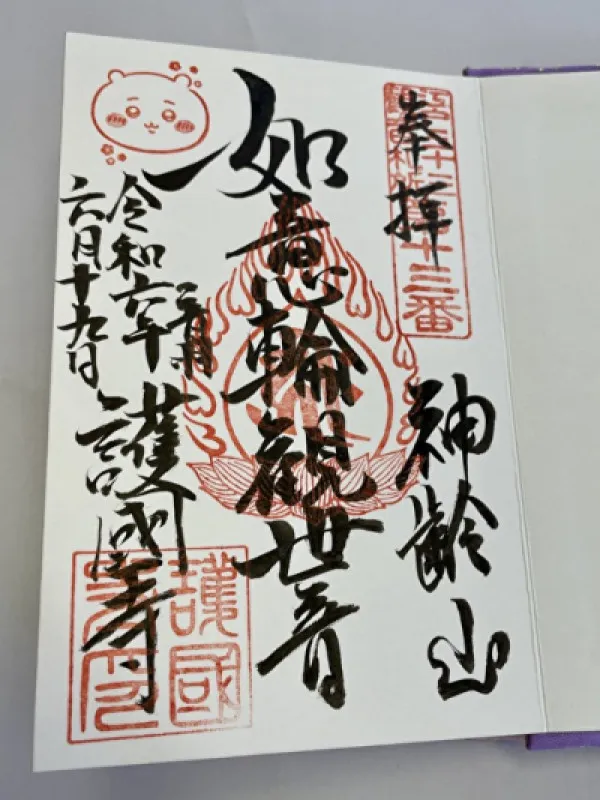 奉拝
神齢山
第十三番
如意輪観世音
令和六年
六月十九日
護國寺
護國
寺印